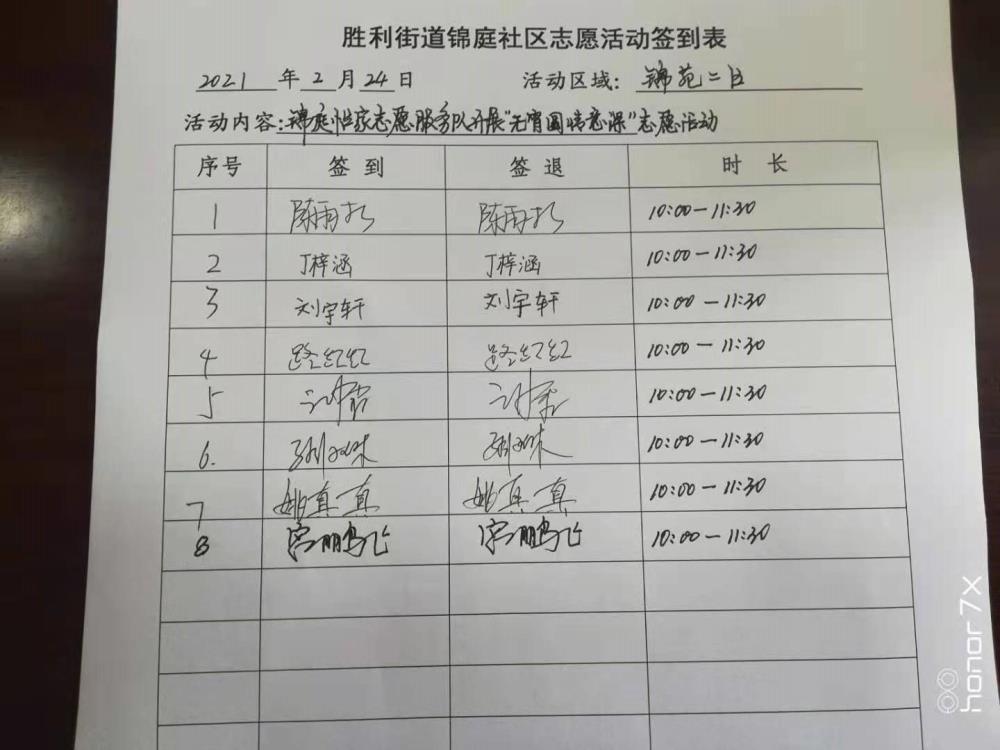 胜利街道锦庭社区志愿活动签到表
2021 年 2 月 24 日 活动区域: 锦苑二区
活动内容: 锦庭恒家志愿服务队开展"元宵圆情意深"志愿活动
序号 签到 签退 时长
1 陈雨 陈雨 10:00-11:30
2 丁梓涵 丁梓涵 10:00-11:30
3 刘宇轩 刘宇轩 10:00-11:30
4 路红红 路红红 10:00-11:30
5 10:00-11:30
6. 10:00-11:30
7 姚真真 姚真真 10:00-11:30
8 宫鹏飞 宫鹏飞 10:00-11:30
honor 7X